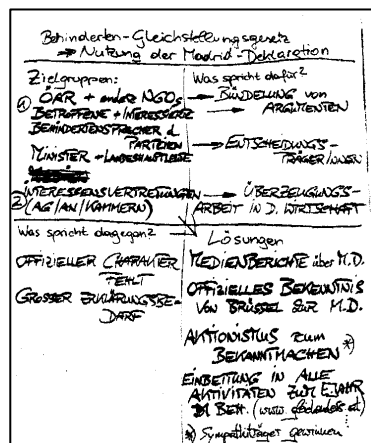 Behinderten-Gleichstellungsgesetz
⇒ Nutzung der Madrid-Deklaration
Zielgruppen:
① ÖAR + andere NGOs
BETROFFENE + INTERESSIERTE
BEHINDERTENSPRECHER d.
PARTEIEN
MINISTER + LANDESHAUPTLEUTE
2) INTERESSENSVERTRETUNGEN
(AG/AN/KAMMERN)
Was spricht dafür?
→ BÜNDELUNG VON
→ ARGUMENTEN
→ ENTSCHEIDUNGS-
TRÄGER/INNEN
→ ÜBERZEUGUNGS-
ARBEIT IN D. WIRTSCHAFT
Was spricht dagegen? →
OFFIZIELLER CHARAKTER
FEHLT
GROSSER ERKLÄRUNGSBE-
DARF
Lösungen
MEDIENBERICHTE über M.D.
OFFIZIELLES BEKENNTNIS
VON BRÜSSEL ZUR M.D.
AKTIONISMUS ZUM
BEKANNTMACHEN *)
EINBETTUNG IN ALLE
AKTIVITÄTEN ZUM EJAHR
D. BEH. (www.
*) Sympathieträger gewinnen